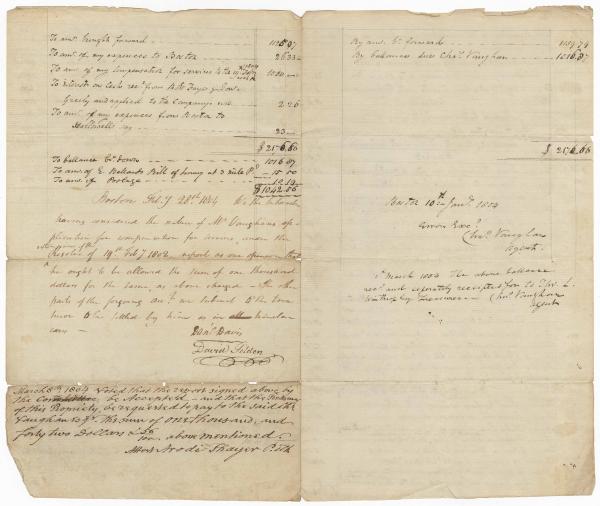 To amt. brought forward 1125.97
To amt. of my expences to Boston 26.33
To amt. of my compensation for services to the 19 Feby 1000
To Interest on Cash recd. from
Greely and applied to the Companys use 2.26
To amt. of my expences from Boston to
Hallowell say 23
$ 2176.66
To ballance bt. down 1016.87
To amt. of E. Ballards Bill of Survey at 3 mile Pd. 15.50
To amt. of Postage 10.19
$ 1042.56
Boston Feby. 28th 1804 We the Subscribers
having considered the nature of Mr. Vaughans ap-
plication for compensation for services, under the
Resolve of 19th Feby 1802, report as our opinion that
he ought to be allowed the sum of one thousand
dollars for the same, as above charged — The other
parts of the forgoing acct. we submit to the trea-
surer to be settled by him as in similar
cases —
Danl. Davis
David Tilden
March 8th, 1804 Voted that the report signed above by
the Committee, be Accepted, — and that the Treasurer
of this Propriety, be requested to pay to the said Chs.
Vaughan Esqr. the sum of one thousand, and
forty two Dollars & 56/100 above mentioned
Attest Arodi Thayer P. Clk
By amt. bt. forward 1159.79
By ballance due Chas. Vaughan 1016.87
$ 2176.66
Boston 10th Jany. 1804
Errors Excd.
Chas. Vaughan
Agent.
March 1804 The above ballance
recd. and separately receipted for to Thos. L.
Winthrop Treasurer — Chas. Vaughan
Agent